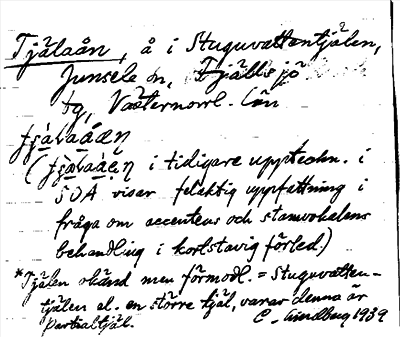 Tjälaån, å i Stuguvattentjälen,
Junsele sn, Fjällsjö
tg, Västernorrl. län
(i tidigare uppteckn. i
SOA visar felaktig uppfattning i
fråga om accentens och stamvokalens
behandling i kortstavig förled.)
*Tjälen okänd men förmodl. = Stuguvatten-
tjälen el. en större tjäl, varav denna är
partialtjäl. C. Lindberg 1939